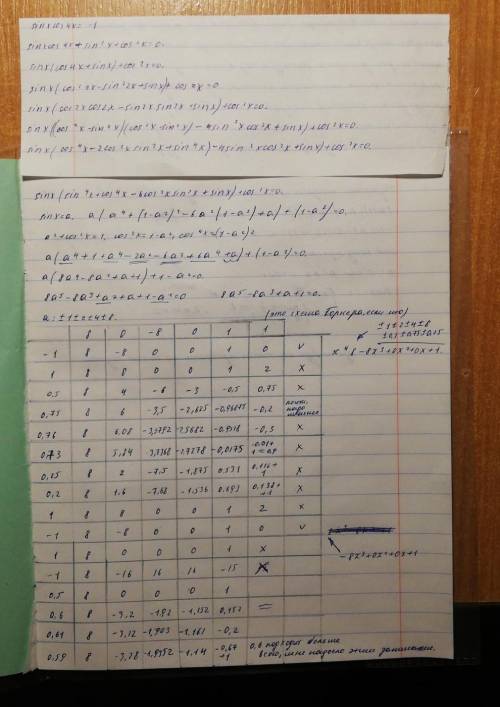 sinxcos4x = -1
sinxcos4x + sin²x + cos²x = 0.
sinx(cos4x + sinx) + cos²x = 0.
sinx(cos²2x - sin²2x + sinx) + cos²x = 0.
sinx(cos2x cos2x - sin2x sin2x + sinx) + cos²x = 0.
sinx((cos²x - sin²x)(cos²x - sin²x) - 4sin²x cos²x + sinx) + cos²x = 0.
sinx(cos⁴x - 2cos²x sin²x + sin⁴x) - 4sin²x cos²x + sinx) + cos²x = 0.
sinx(sin⁴x + cos⁴x - 6cos²x sin²x + sinx) + cos²x = 0.
sinx = a. a(a⁴ + (1-a²)² - 6a²(1-a²) + a) + (1-a²) = 0.
a² + cos²x = 1, cos²x = 1-a², cos⁴x = (1-a²)²
a(a⁴ + 1 + a⁴ - 2a² - 6a² + 6a⁴ + a) + (1-a²) = 0.
a(8a⁴ - 8a² + a + 1) + 1 - a² = 0.
8a⁵ - 8a³ + a² + a + 1 - a² = 0 8a⁵ - 8a³ + a + 1 = 0.
a: ±1±2±4±8. (это схема Горнера, если что)
8 0 -8 0 1 1
-1 8 -8 0 0 1 0 v
1 8 8 0 0 1 2 x
0,5 8 4 -6 -3 -0,5 0,75 x
0,75 8 6 -3,5 -2,625 -0,96875 -0,2
0,76 8 6,08 -0,3 x
0,73 8 5,84 -0,0175 x
0,25 8 2 -7,5 -1,875 0,531 x
0,2 8 1,6 -7,68 -1,536 0,693 x
1 8 8 0 0 1 2 x
-1 8 -8 0 0 1 0 v
1 8 0 0 0 1 x
-1 8 -16 16 16 -15 x
0,5 8 0 0 0 1
0,6 8 -3,2 -1,92 -1,152 =
0,61 8 -3,12 -1,903 -1,161 -0,2
0,59 8 -3,28 -1,9352 -1,14
±1±2±4±8
-8x³+0x²+0x+1
0,6 подходит больше
всего, мне надоело этим заниматься.